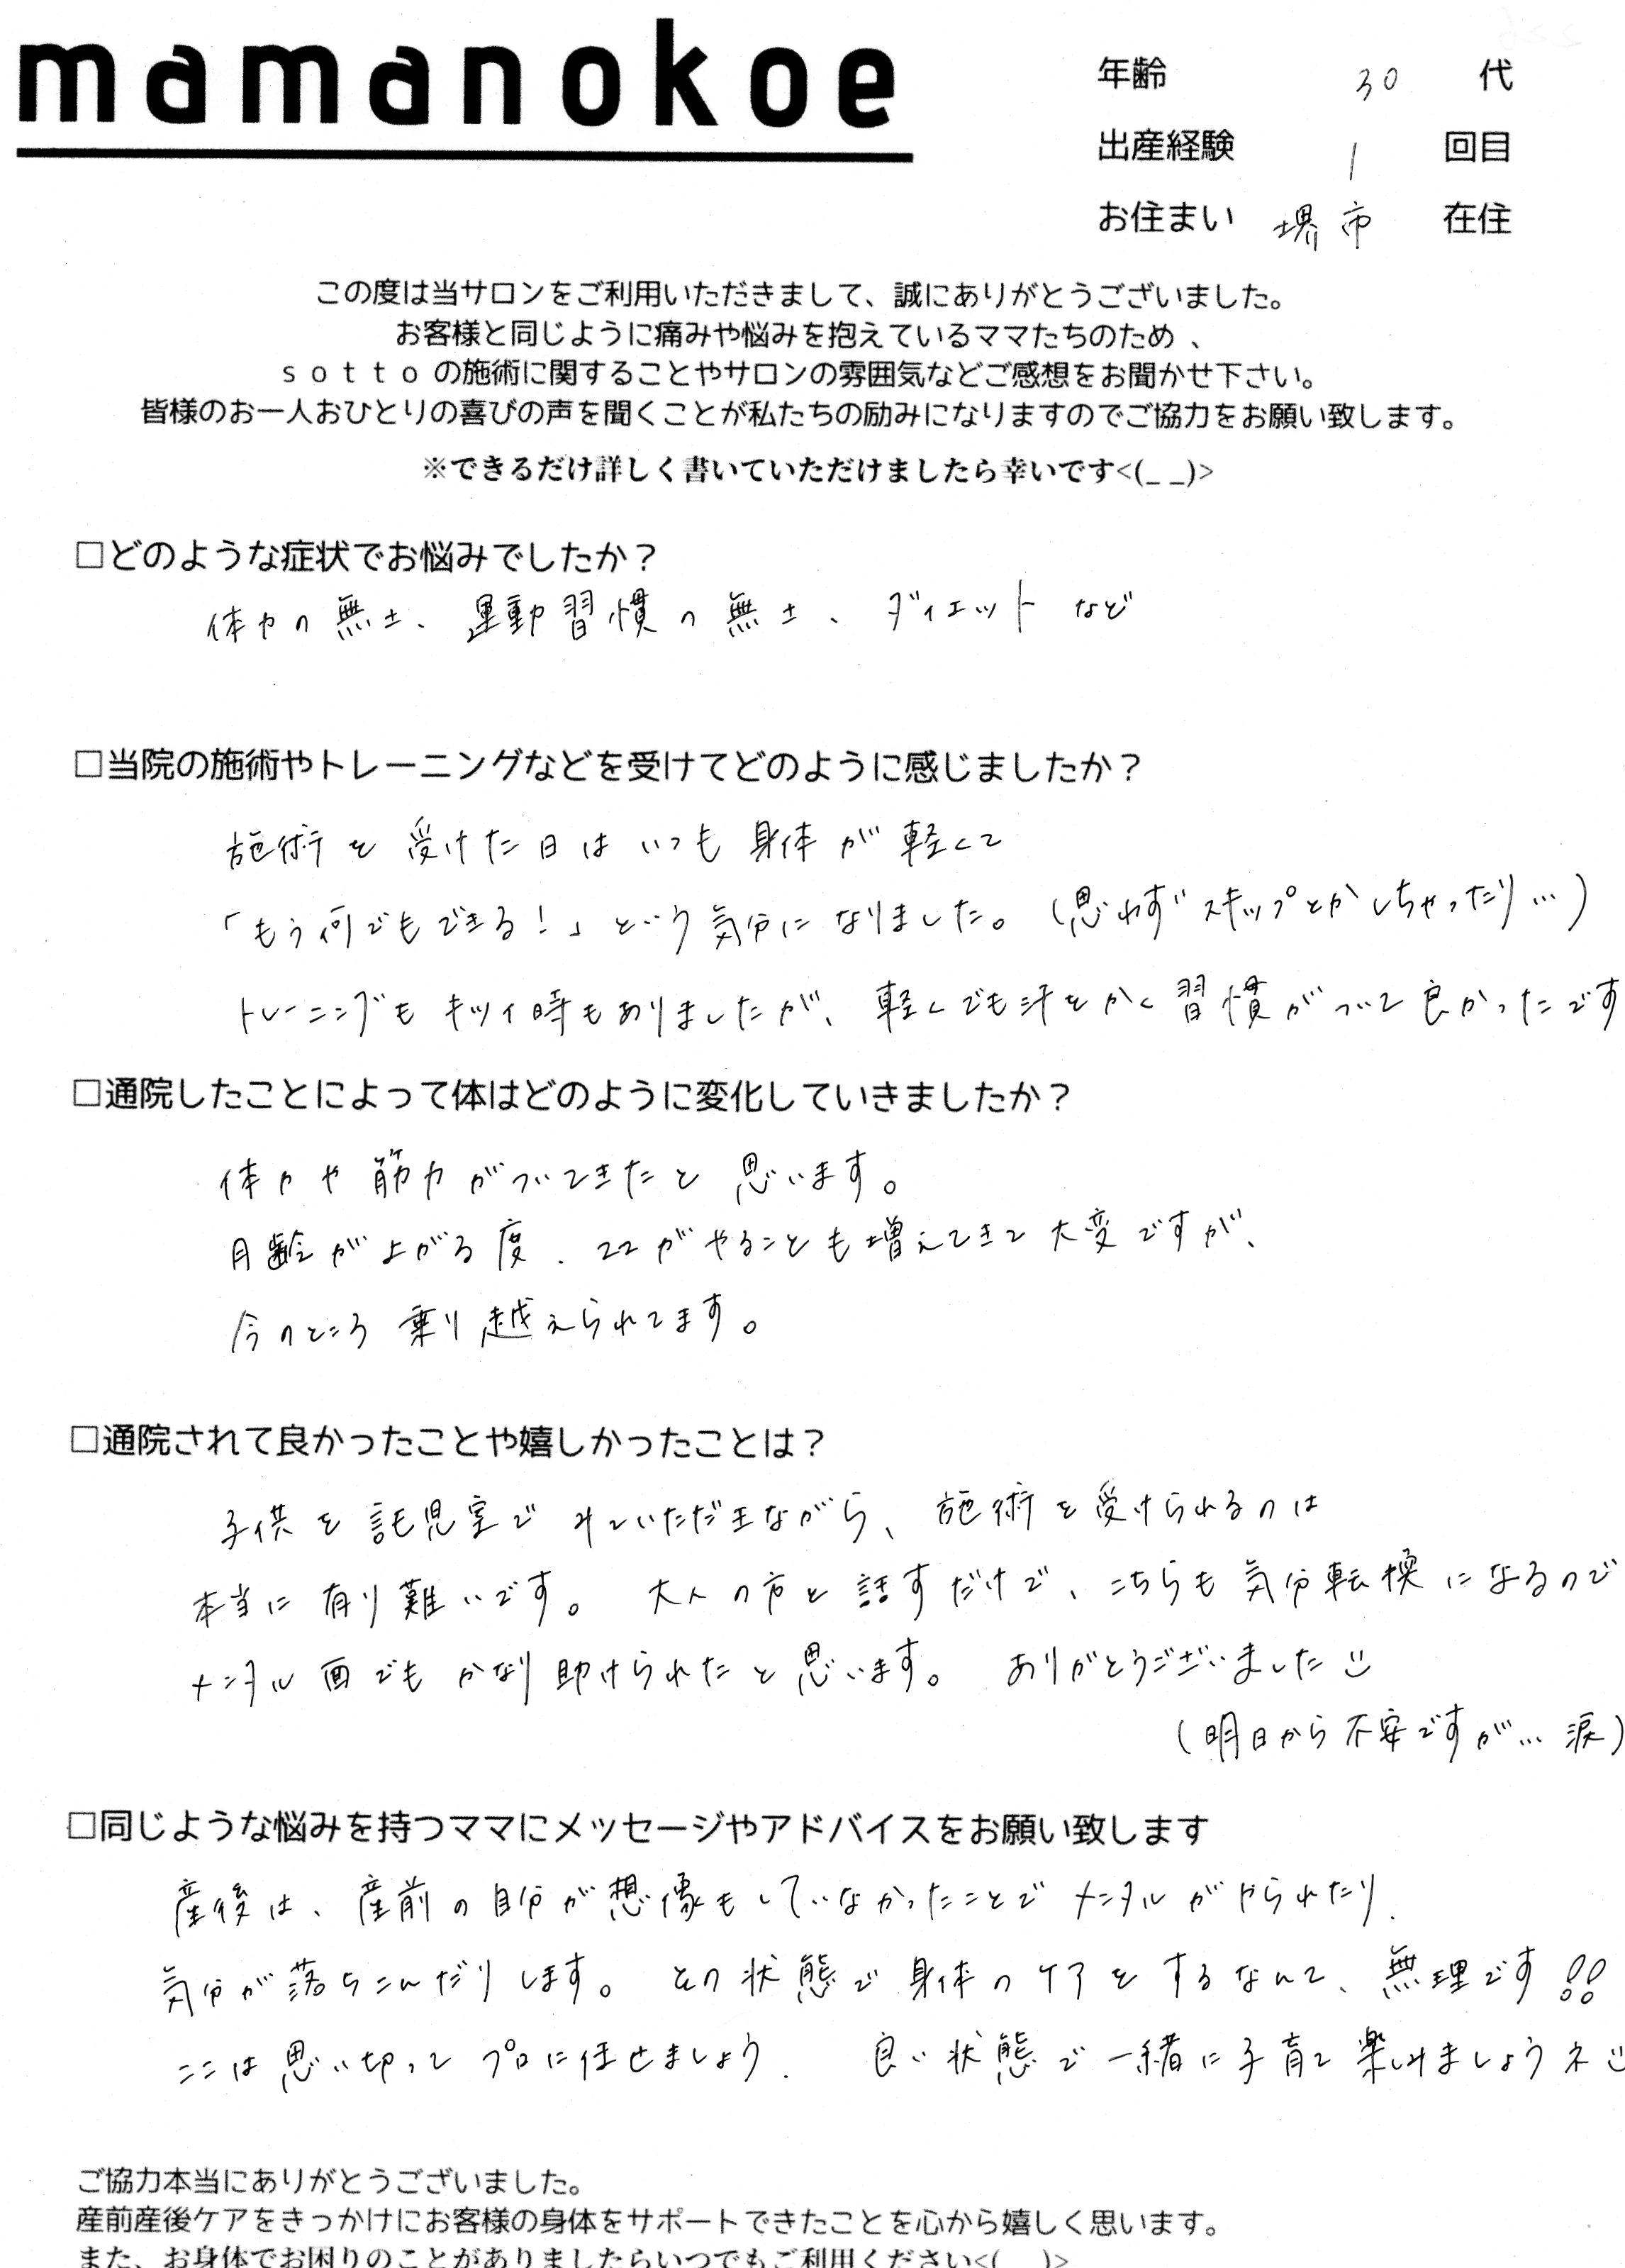 mamanokoe
年齢 30 代
出産経験 1 回目
お住まい 堺市 在住
この度は当サロンをご利用いただきまして、誠にありがとうございました。
お客様と同じように痛みや悩みを抱えているママたちのため、
sottoの施術に関することやサロンの雰囲気などご感想をお聞かせ下さい。
皆様のお一人おひとりの喜びの声を聞くことが私たちの励みになりますのでご協力をお願い致します。
※できるだけ詳しく書いていただけましたら幸いです<(_ _)>
□どのような症状でお悩みでしたか？
体力の無さ、運動習慣の無さ、ダイエットなど
□当院の施術やトレーニングなどを受けてどのように感じましたか？
施術を受けた日はいつも身体が軽くて
「もう何でもできる！」という気分になりました。(思わずスキップとかしちゃったり…)
トレーニングもキツイ時もありましたが、軽くでも汗をかく習慣がついて良かったです
□通院したことによって体はどのように変化していきましたか？
体力や筋力がついてきたと思います。
月齢が上がる度、ココがやることも増えてきて大変ですが、
今のところ乗り越えられてます。
□通院されて良かったことや嬉しかったことは？
子供を託児室でみていただきながら、施術を受けられるのは
本当に有り難いです。大人の方と話すだけで、こちらも気分転換になるので
メンタル面でもかなり助けられたと思います。ありがとうございました
(明日から不安ですが…涙)
□同じような悩みを持つママにメッセージやアドバイスをお願い致します
産後は、産前の自分が想像もしていなかったことでメンタルがやられたり、
気分が落ちこんだりします。その状態で身体のケアをするなんて、無理です!!
ここは思い切ってプロに任せましょう。良い状態で一緒に子育て楽しみましょうネ
ご協力本当にありがとうございました。
産前産後ケアをきっかけにお客様の身体をサポートできたことを心から嬉しく思います。
また、お身体でお困りのことがありましたらいつでもご利用ください<(_ _)>